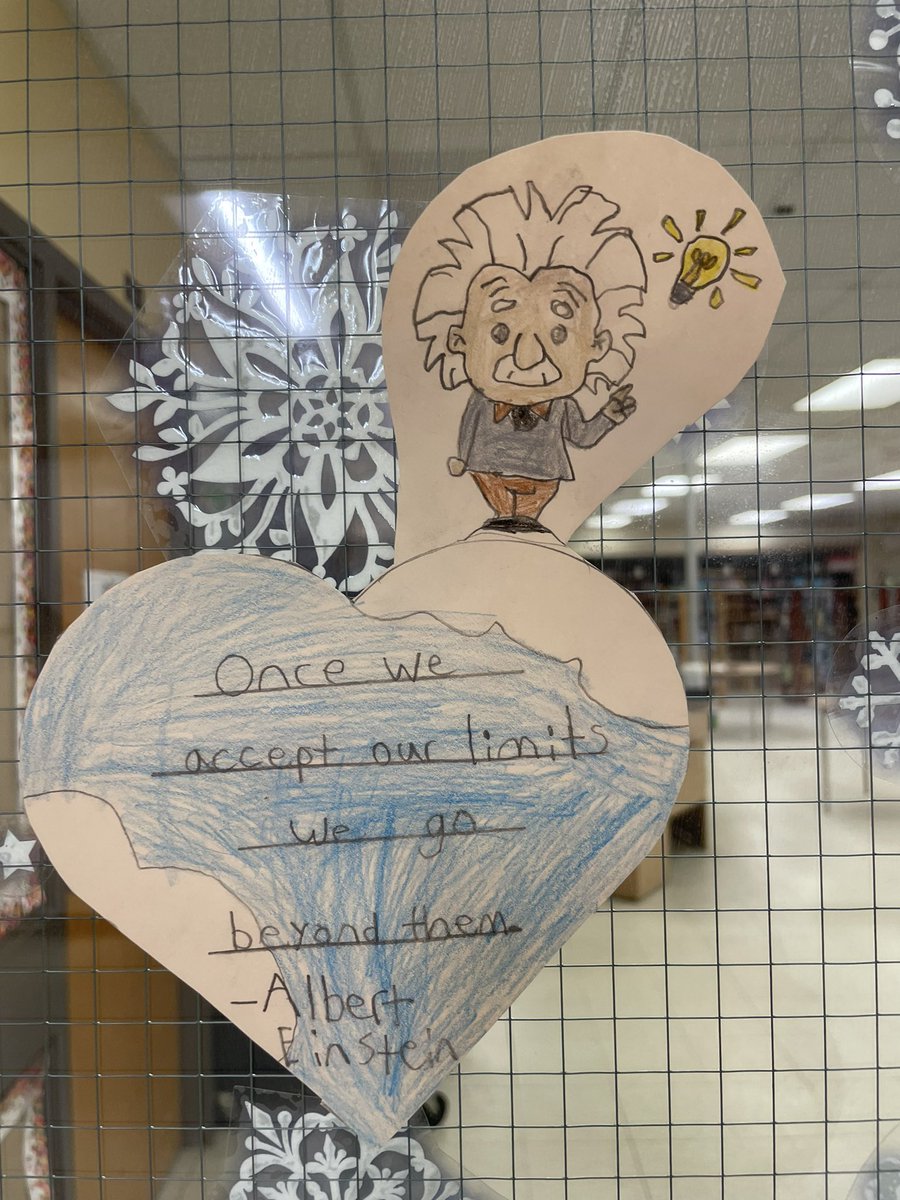 Once we
accept our limits
we go
beyond them.
-Albert
Einstein